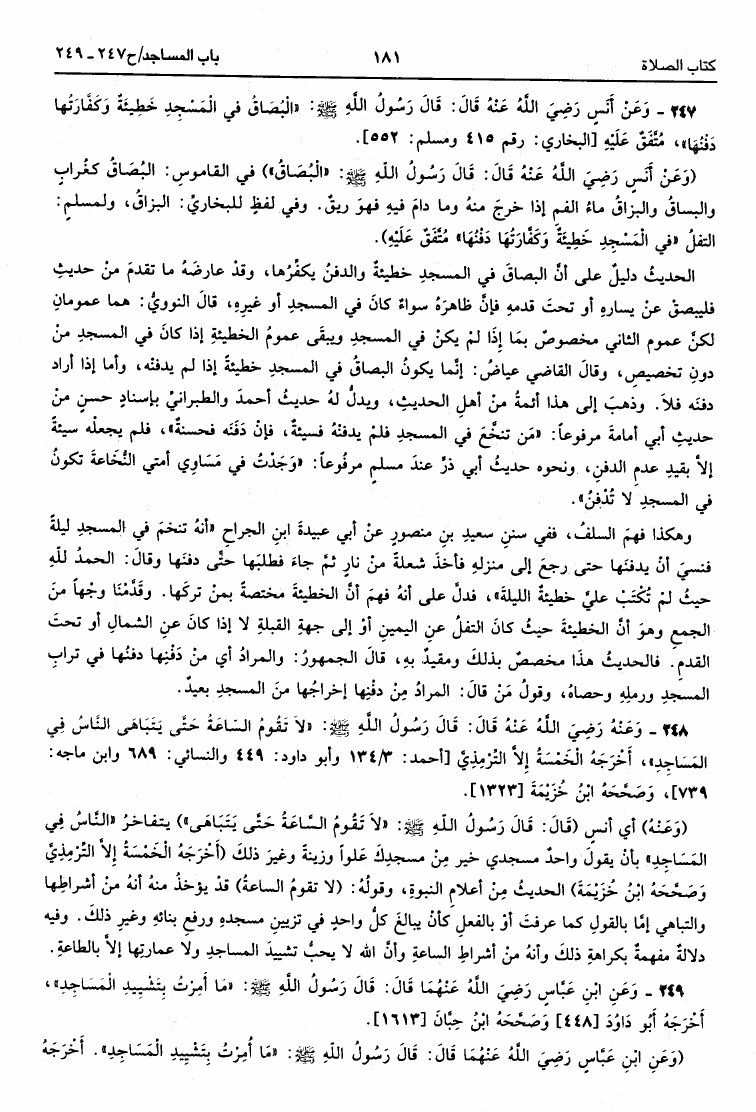 كتاب الصلاة ١٨١ باب المساجد/ح٢٤٧ ـ ٢٤٩
٢٤٧ ـ وَعَنْ أَنَسٍ رَضِيَ اللَّهُ عَنْهُ قَالَ: قَالَ رَسُولُ اللَّهِ ﷺ: «الْبُصَاقُ في الْمَسْجِدِ خَطِيئَةٌ وَكَفَّارَتُها
دَفْنُهَا»، مُتَّفَقٌ عَلَيْهِ [البخاري: رقم ٤١٥ ومسلم: ٥٥٢].
(وَعَنْ أَنَسٍ رَضِيَ اللَّهُ عَنْهُ قَالَ: قَالَ رَسُولُ اللّهِ ﷺ: «الْبُصَاقُ») في القاموس: البُصَاقُ كغُرابٍ
والبساقُ والبزاقُ ماءُ الفمِ إذا خرجَ منهُ وما دامَ فيهِ فهوَ ريقٌ. وفي لفظٍ للبخاريِّ: البزاقُ، ولمسلمٍ:
التفلُ «في الْمَسْجِدِ خَطِيئَةٌ وَكَفَّارَتُهَا دَفْنُهَا» مُتَّفَقٌ عَلَيْهِ).
الحديثُ دليلٌ على أنَّ البصاقَ في المسجدِ خطيئةٌ والدفنُ يكفِّرُها، وقدْ عارضَهُ ما تقدمَ منْ حديثِ
فليبصقْ عنْ يسارِهِ أو تحتَ قدمهِ فإنَّ ظاهرَهُ سواءٌ كانَ في المسجدِ أو غيرِهِ، قالَ النوويُّ: هما عمومانِ
لكنَّ عمومَ الثاني مخصوصٌ بمَا إذَا لَمْ يكنْ في المسجدِ ويبقى عمومُ الخطيئةِ إذا كانَ في المسجدِ منْ
دونِ تخصيصٍ، وقالَ القاضي عياضٌ: إنَّما يكونُ البصاقُ في المسجدِ خطيئةً إذا لم يدفنْه، وأما إذا أراد
دفنَه فلاَ. وذهبَ إلى هذا أئمةٌ منْ أهلِ الحديثِ، ويدلُّ لهُ حديثُ أحمدَ والطبرانيِّ بإسنادٍ حسنٍ منْ
حديثِ أبي أمامةَ مرفوعاً: «مَن تنخَّعَ في المسجدِ فلمْ يدفنْهُ فسيئةٌ، فإنْ دَفَنَه فحسنةٌ»، فلم يجعلْه سيئةً
إلاَّ بقيدِ عدمِ الدفنِ، ونحوه حديثُ أبي ذرٍّ عندَ مسلمٍ مرفُوعاً: «وَجَدْتُ في مَسَاوِي أمتي النُّخَاعَةَ تكونُ
في المسجدِ لا تُدْفنُ».
وهكذا فهمَ السلفُ، ففي سننِ سعيدِ بنِ منصورٍ عنْ أبي عبيدةَ ابنِ الجراحِ «أنهُ تنخمَ في المسجدِ ليلةً
فنسيَ أنْ يدفنَها حتى رجعَ إلى منزلِهِ فأخذَ شعلةً منْ نارٍ ثمَّ جاءَ فطلبَها حتَّى دفنَها وقالَ: الحمدُ للَّهِ
حيثُ لمْ تُكْتَبْ عليَّ خطيئةُ الليلةَ»، فدلَّ على أنهُ فهمَ أنَّ الخطيئةَ مختصةٌ بمنْ تركَها. وقدَّمْنَا وجْهاً منَ
الجمعِ وهوَ أنَّ الخطيئةَ حيثُ كانَ التفلُ عنِ اليمينِ أوْ إلى جهةِ القبلةِ لا إذا كانَ عنِ الشمالِ أو تحتَ
القدمِ. فالحديثُ هذا مخصصٌ بذلكَ ومقيدٌ بهِ، قالَ الجمهورُ: والمرادُ أي منْ دَفْنِها دفنُها في ترابِ
المسجدِ ورملِهِ وحصاهُ، وقولُ مَنْ قالَ: المرادُ مِنْ دفنِها إخراجُها منَ المسجدِ بعيدٌ.
٢٤٨ ـ وَعَنْهُ رَضِيَ اللَّهُ عَنْهُ قَالَ: قَالَ رَسُولُ اللَّهِ ﷺ: «لاَ تَقُومُ السَّاعَةُ حَتَّى يَتَبَاهَى النَّاسُ فِي
المَسَاجِدِ»، أَخْرَجَهُ الْخَمْسَةُ إِلاَّ التِّرْمِذِيَّ [أحمد: ١٣٤/٣ وأبو داود: ٤٤٩ والنسائي: ٦٨٩ وابن ماجه:
٧٣٩]، وَصَحَّحَهُ ابْنُ خُزَيْمَةَ [١٣٢٣].
(وَعَنْهُ) أي أنسٍ (قَالَ: قَالَ رَسُولُ اللّهِ ﷺ: «لاَ تَقُومُ السَّاعَةُ حَتَّى يَتَبَاهَى») يتفاخرُ «النَّاسُ فِي
المَسَاجِدِ» بأنْ يقولَ واحدٌ مسجدي خير مِنْ مسجدِكَ علواً وزينةً وغيرَ ذلكَ (أَخْرَجَهُ الْخَمْسَةُ إِلاَّ التِّرْمِذِيَّ
وَصَحَّحَهُ ابْنُ خُزَيْمَةَ) الحديثُ مِنْ أعلامِ النبوةِ، وقولُهُ: (لا تقومُ الساعةُ) قدْ يؤخذُ منهُ أنهُ منْ أشراطِها
والتباهي إمَّا بالقولِ كما عرفتَ أوْ بالفعلِ كأنْ يبالغَ كلُّ واحدٍ في تزيينِ مسجدِهِ ورفعِ بنائِهِ وغيرِ ذلكَ. وفيه
دلالةٌ مفهمةٌ بكراهةِ ذلكَ وأنهُ منْ أشراطِ الساعةِ وأنَّ الله لا يحبُّ تشييدَ المساجدِ ولا عمارتِها إلاَّ بالطاعةِ.
٢٤٩ ـ وَعَنِ ابْنِ عَبَّاسٍ رَضِيَ اللَّهُ عَنْهُمَا قَالَ: قَالَ رَسُولُ اللَّهِ ﷺ: «مَا أُمِرْتُ بِتَشْيِيدِ الْمَسَاجِدِ»،
أَخْرَجَهُ أَبُو دَاوُدَ [٤٤٨] وَصَحَّحَهُ ابْنُ حِبَّانَ [١٦١٣].
(وَعَنِ ابْنِ عَبَّاسٍ رَضِيَ اللَّهُ عَنْهُمَا قَالَ: قَالَ رَسُولُ اللّهِ ﷺ: «مَا أُمِرْتُ بِتَشْيِيدِ الْمَسَاجِدِ». أَخْرَجَهُ